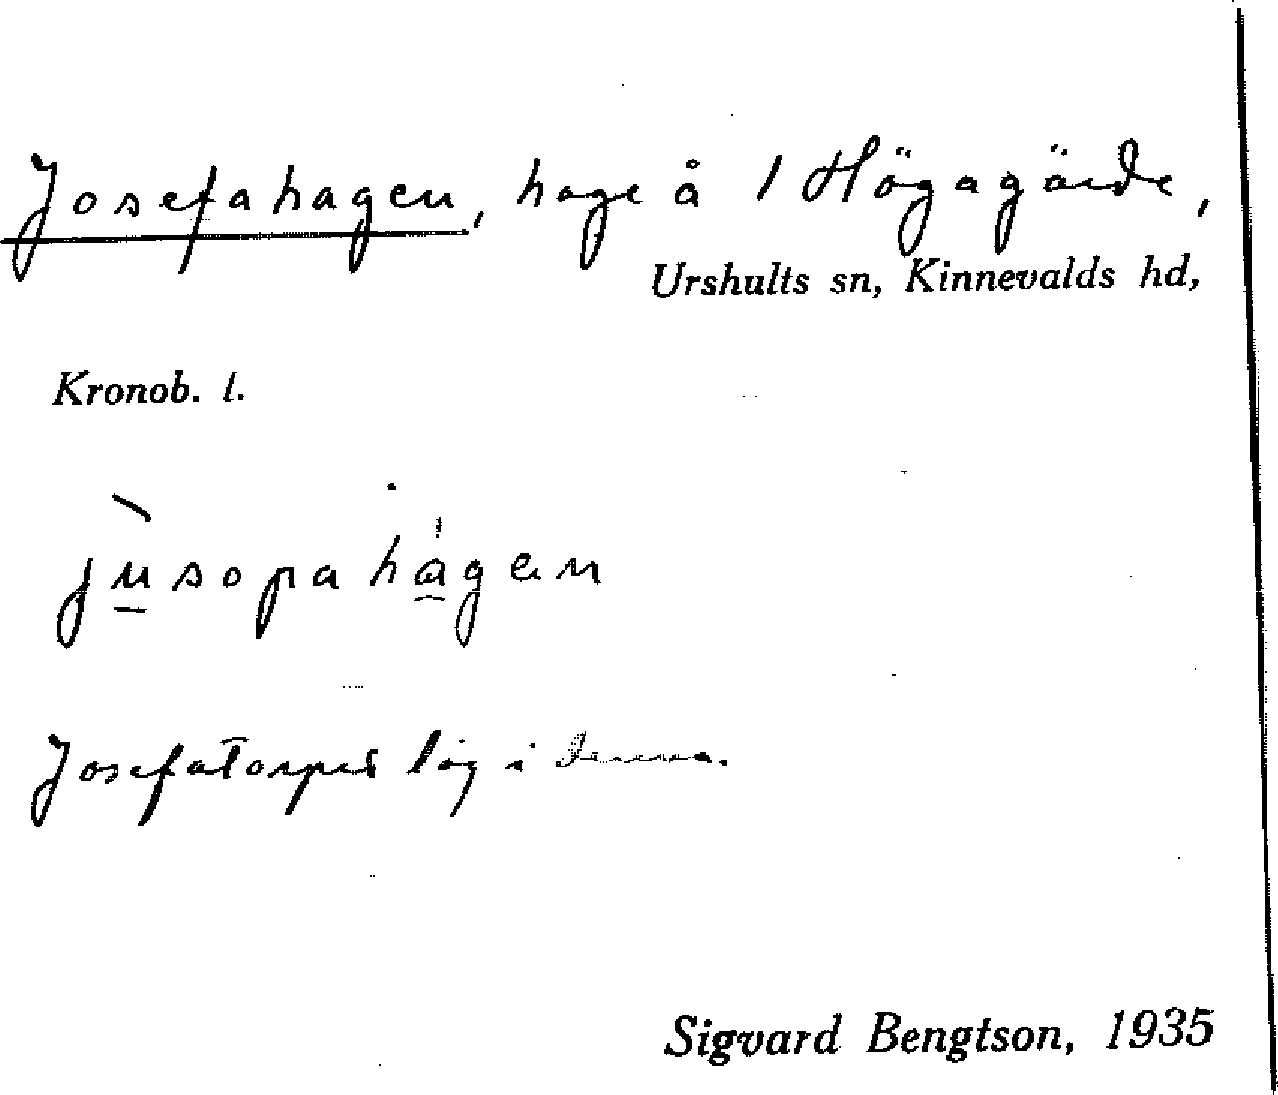 Josefahagen, hage å 1 Högagärde,
Urshults sn, Kinnevalds hd,
Kronob. l.
jùsopahagen
Josefatorpet låg i denna.
Sigvard Bengtson, 1935